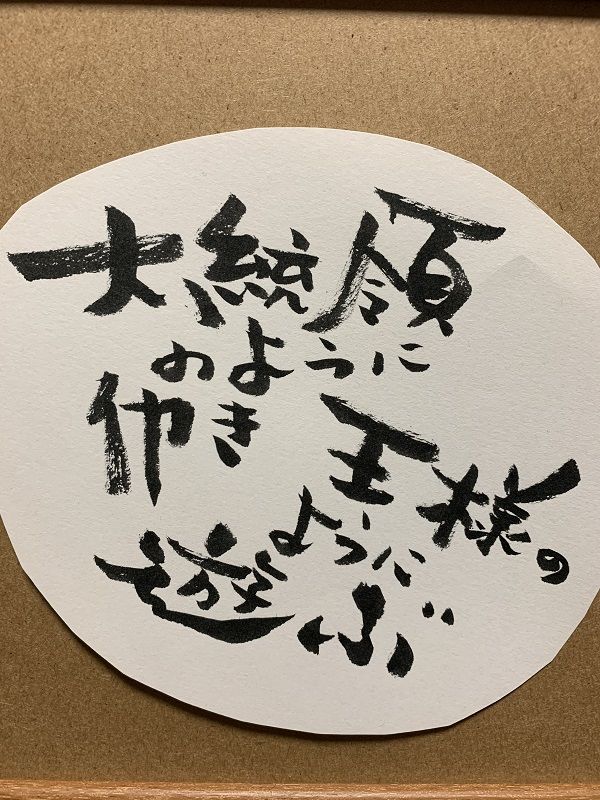 大統領
のように
働き
王様の
ように
遊ぶ